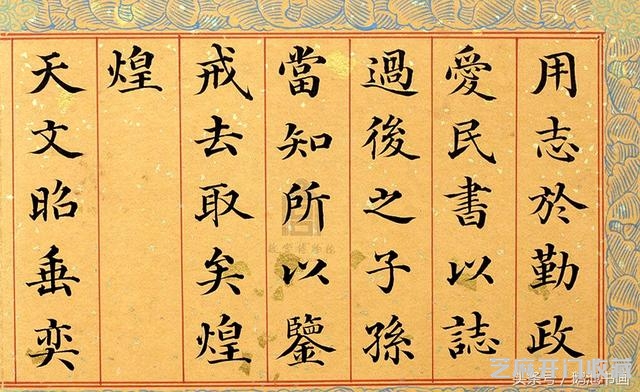 用志於勤政
愛民書以誌
過後之子孫
當知所以鑒
戒去取矣煌
煌
天文昭垂奕
故宫博物院
芝麻开门收藏
头条号/鹅湖书画